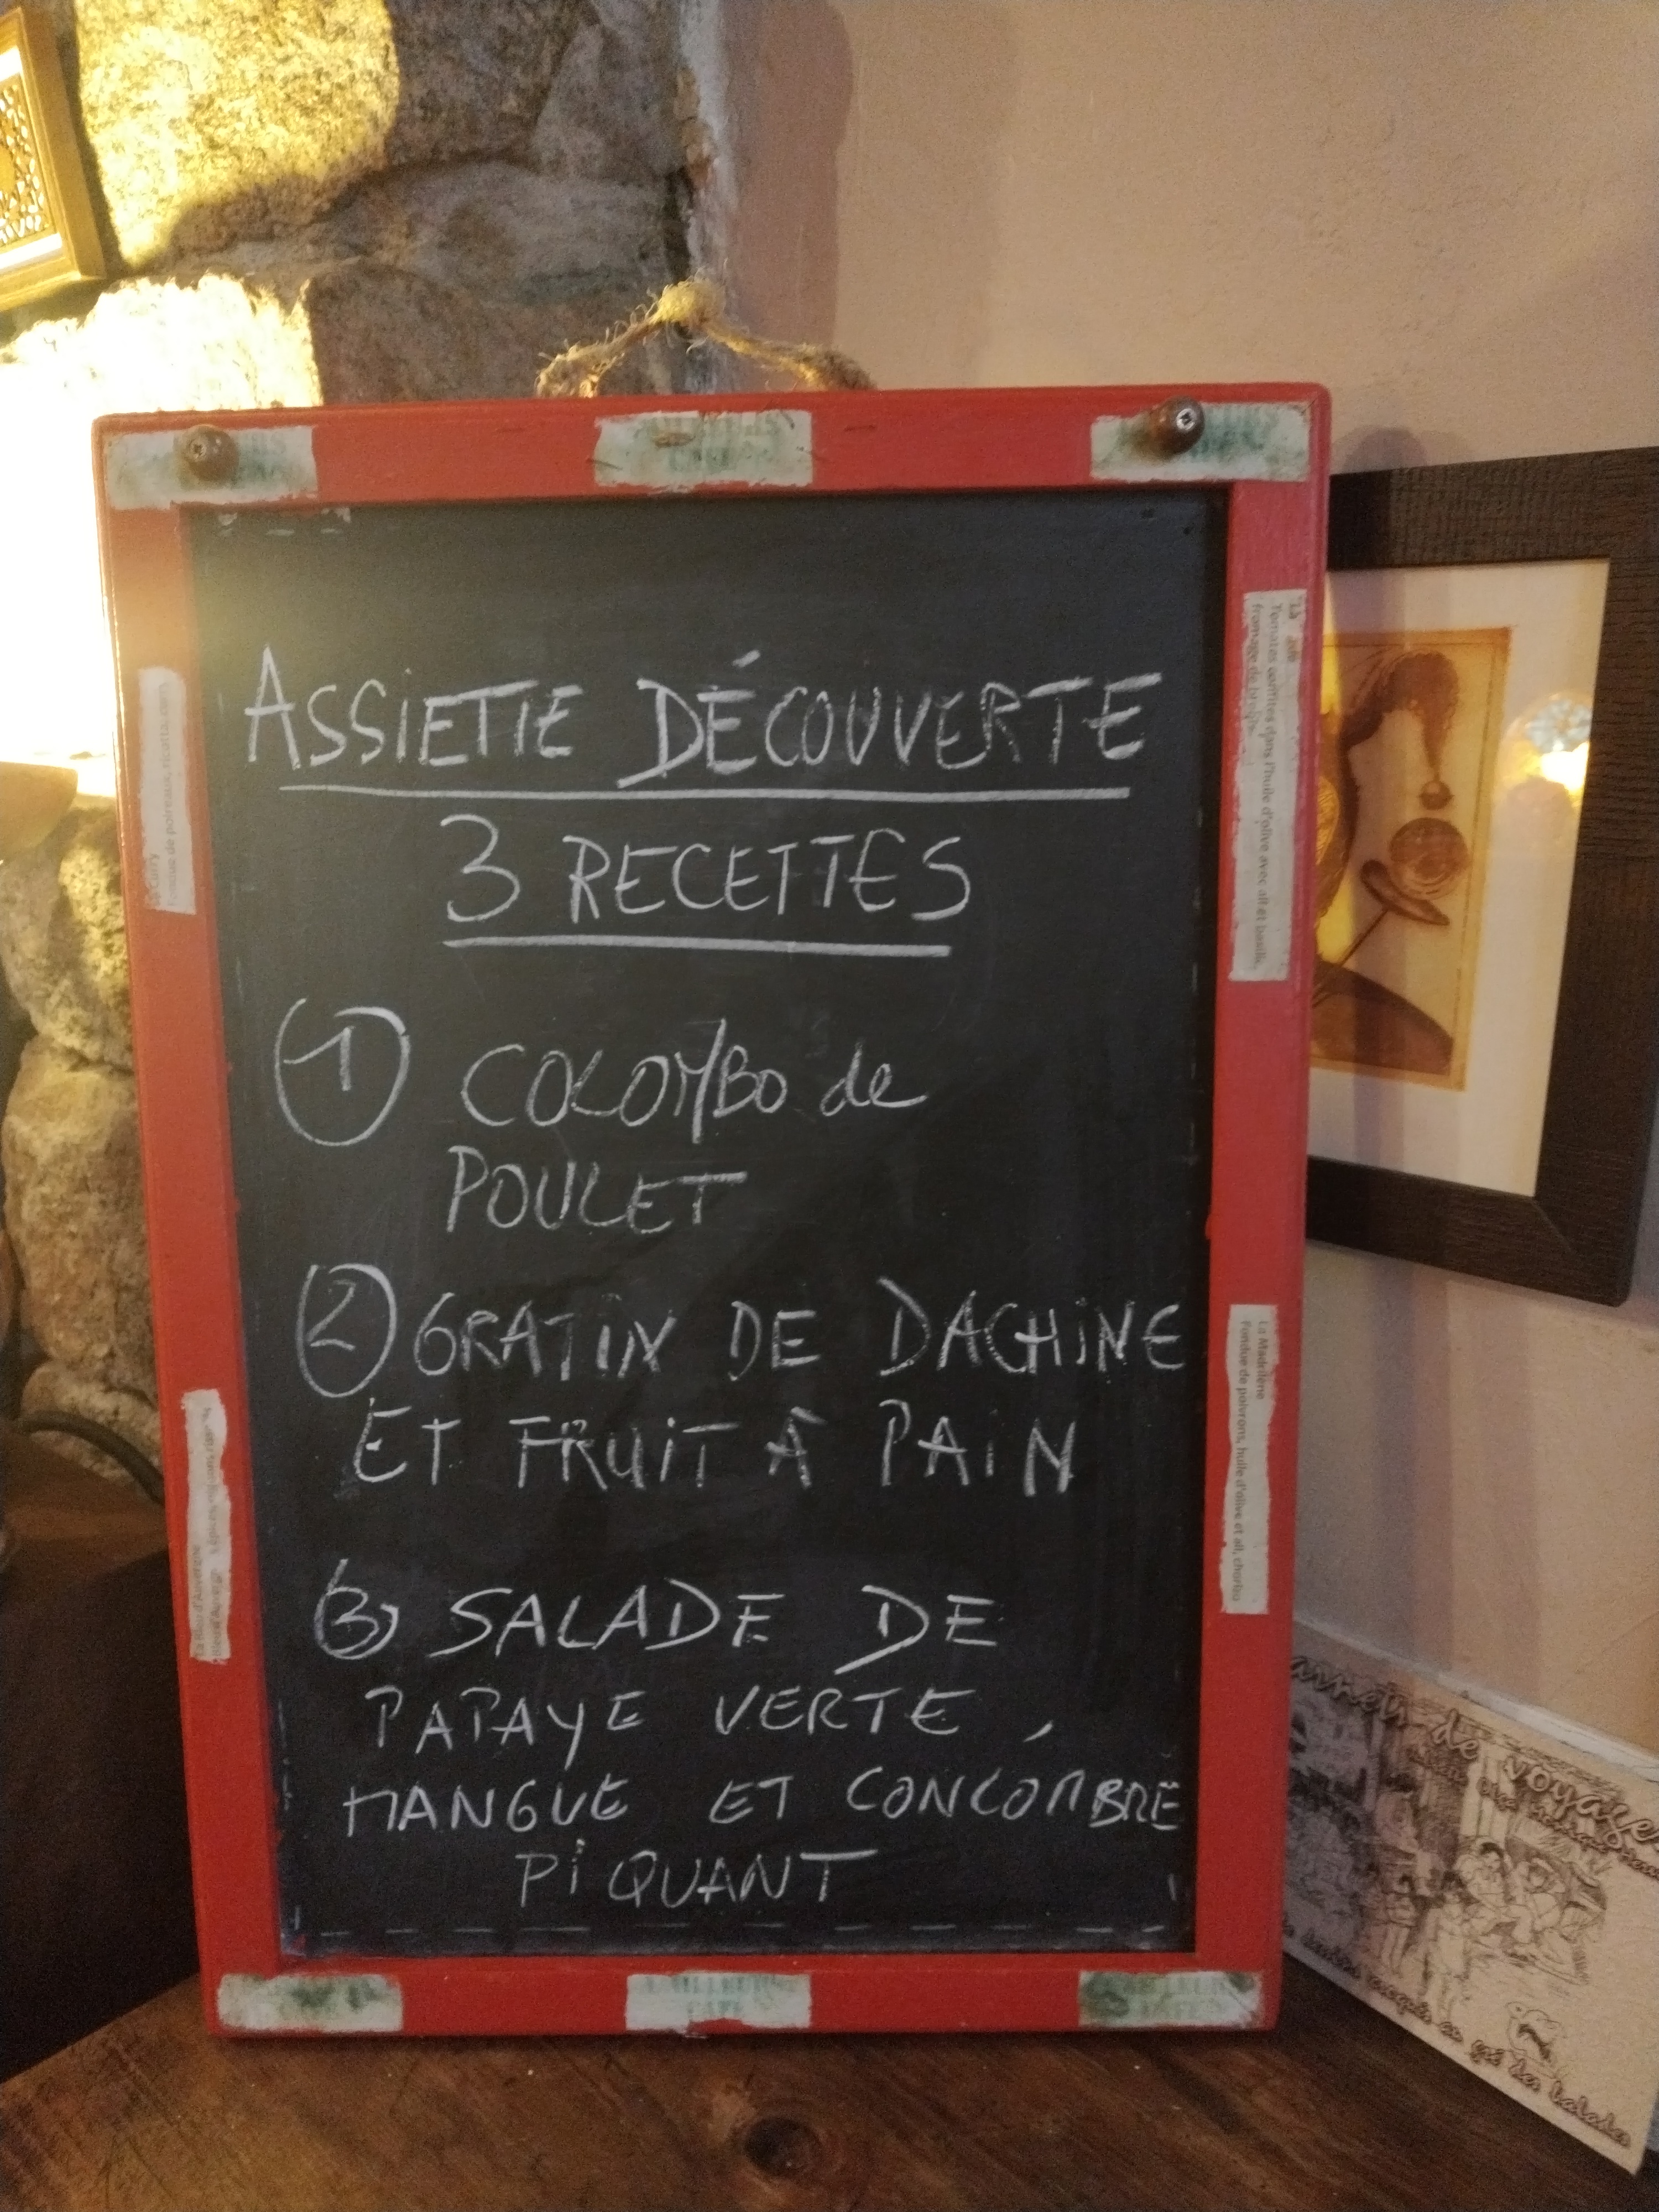 ASSIETTE DÉCOUVERTE
3 RECETTES
1 COLOMBO de
POULET
2 GRATIN DE DACHINE
ET FRUIT À PAIN
3 SALADE DE
PAPAYE VERTE,
MANGUE ET CONCOMBRE
PIQUANT
Tomates confites dans l'huile d'olive avec ail et basilic,
fromage de brebis
La Madrilène
Fondue de poivrons, huile d'olive et ail, chorizo
Curry
Fondue de poireaux, ricotta,
d'Auvergne
de voyage
au gré des balades